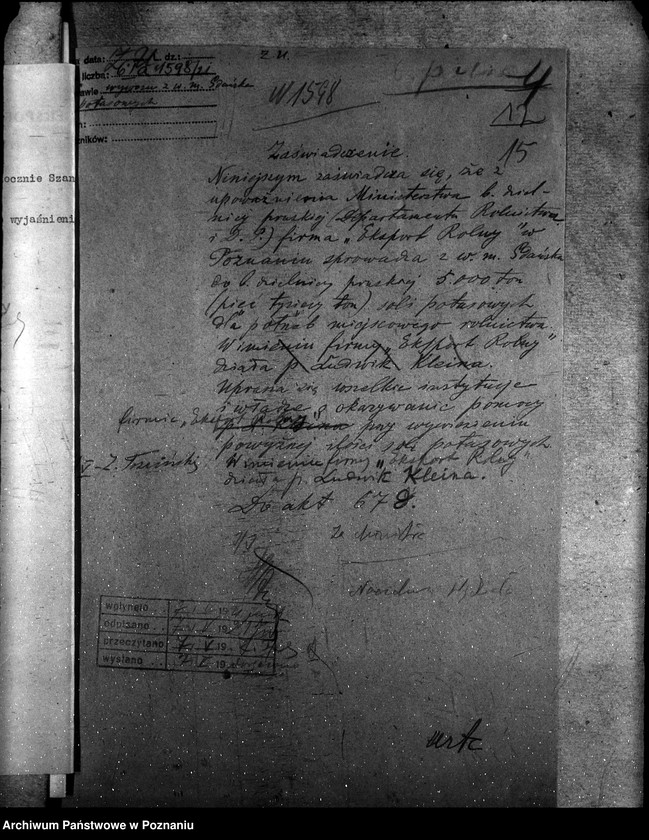 data: 7/V dz.:
liczba: 1598/21
wywozu z w. m. Gdańska
potasowych
z u.
W 1598
pilne
12
15
ocznie Szan
wyjaśnieni
Zaświadczenie.
Niniejszym zaświadcza się, że z
upoważnienia Ministerstwa b. dziel-
nicy pruskiej (Departamentu Rolnictwa
i D. P.) firma „Eksport Rolny" w
Poznaniu sprowadza z w. m. Gdańska
do b. dzielnicy pruskiej 5.000 ton
(pięć tysięcy ton) soli potasowych
dla potrzeb miejscowego rolnictwa.
W imieniu firmy „Eksport Rolny"
działa p. Ludwik Kleina.
Uprasza się wszelkie instytucje
i władze o okazywanie pomocy
firmie przy wywożeniu
powyższej ilości soli potasowych.
W imieniu firmy „Eksport Rolny"
działa p. Ludwik Kleina.
Do akt 67
Za Ministra
wpłynęło
odpisano
przeczytano
wysłano
Archiwum Państwowe w Poznaniu